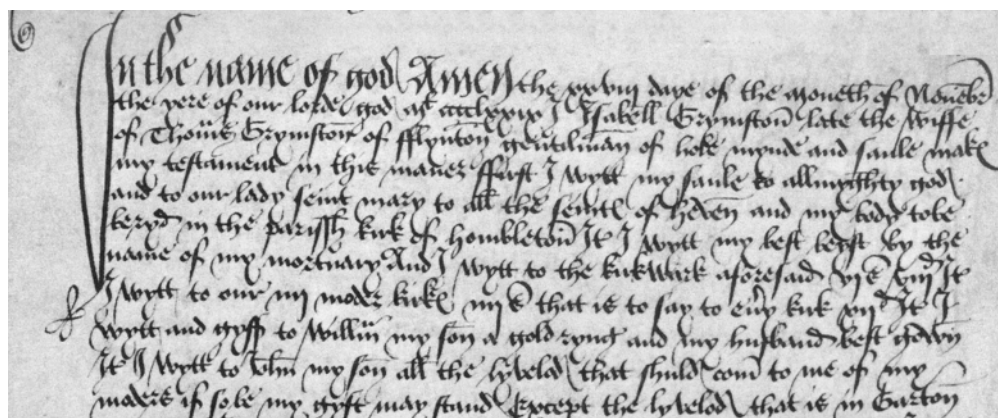 In the name of god Amen the xxviij daye of the moneth of Novēbr
the yere of our lorde god m̄ cccclxxix I Isabell Grymston late the Wiffe
of Thom̄s Grymston of fflynton gentilman of hole mynde and saule mak
my testament in this maner ffirst I wytt my saule to allmyghty god
and to our lady seint mary to all the seintes of heven and my body to be
beryd in the parissh kirk of Hombleton It I wytt my best beist by the
name of my mortuary And I wytt to the kirkwark aforesad vjs viijd It
I wytt to our iiij moder kirkes iiijs that is to say to ev̄y kirk xijd It I
wytt and gyff to Willm̄ my son a gold ryng and my husband best gown
It I wytt to my son all the lyvelod that shuld com to me of my
moders if so be my gyft may stand Except the lyvelod that is in Garton